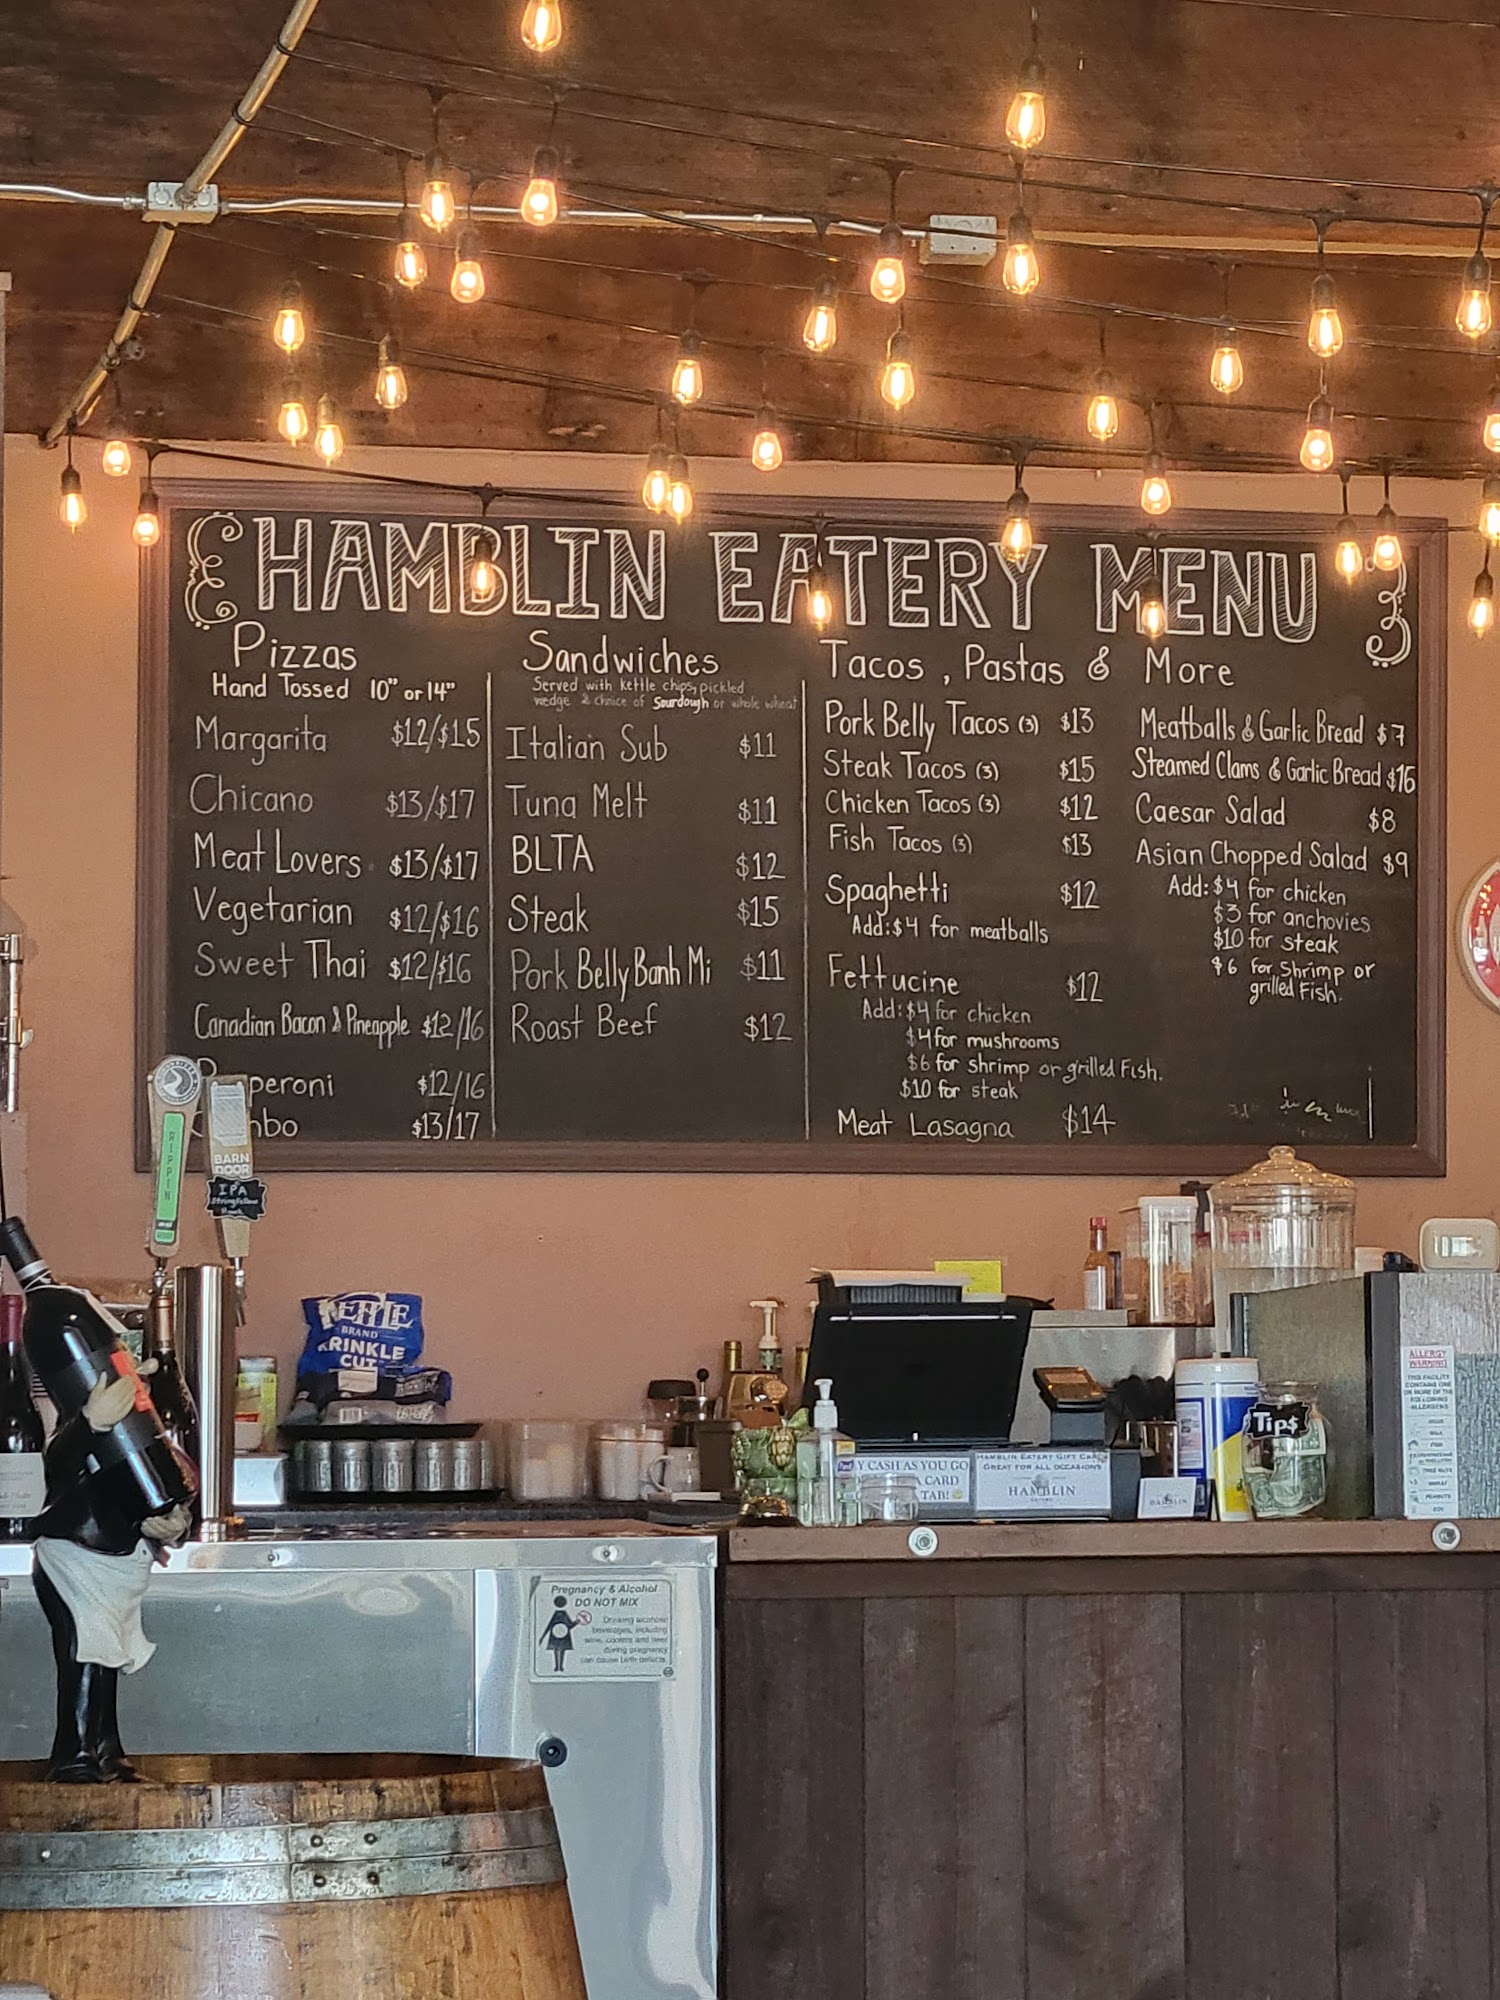 HAMBLIN EATERY MENU
Pizzas
Hand Tossed 10" or 14"
Margarita $12/$15
Chicano $13/$17
Meat Lovers $13/$17
Vegetarian $12/$16
Sweet Thai $12/$16
Canadian Bacon & Pineapple $12/16
peroni $12/16
bo $13/17
Sandwiches
Served with kettle chips, pickled
wedge & choice of Sourdough or whole wheat
Italian Sub $11
Tuna Melt $11
BLTA $12
Steak $15
Pork Belly Banh Mi $11
Roast Beef $12
Tacos, Pastas & More
Pork Belly Tacos (3) $13
Steak Tacos (3) $15
Chicken Tacos (3) $12
Fish Tacos (3) $13
Spaghetti $12
Add: $4 for meatballs
Fettucine $12
Add: $4 for chicken
$4 for mushrooms
$6 for shrimp or grilled Fish.
$10 for steak
Meat Lasagna $14
Meatballs & Garlic Bread $7
Steamed Clams & Garlic Bread $16
Caesar Salad $8
Asian Chopped Salad $9
Add: $4 for chicken
$3 for anchovies
$10 for steak
$6 for Shrimp or
grilled Fish.
RIPPIN
BARN
DOOR
IPA
KETTLE
BRAND
KRINKLE
CUT
Y CASH AS YOU GO
A CARD
TAB!
HAMBLIN EATERY GIFT CARDS
GREAT FOR ALL OCCASIONS
HAMBLIN
HAMBLIN
Tips
ALLERGY
WARNING
THIS FACILITY
CONTAINS ONE
OR MORE OF THE
FOLLOWING
ALLERGENS
MILK
FISH
TREE NUTS
WHEAT
PEANUTS
SOY
Pregnancy & Alcohol
DO NOT MIX
Drinking alcoholic
beverages, including
wine, coolers and beer
during pregnancy
can cause birth defects.